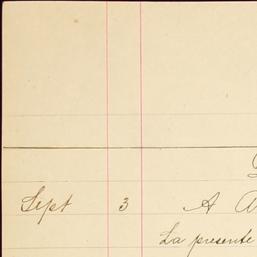 Sept 3 A
La presente